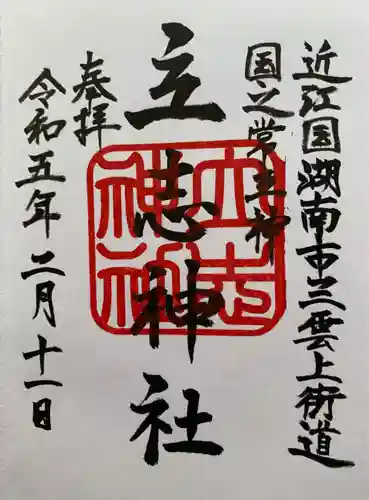 近江国湖南市三雲上街道
国之常立神
立志神社
奉拝
令和五年二月十一日